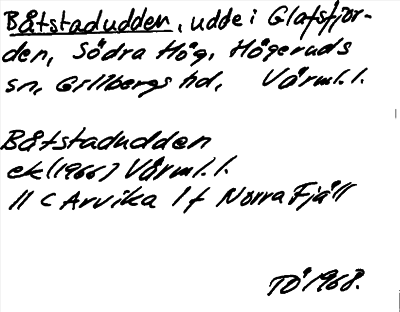 Båtstadudden, udde i Glafsfjor-
den, Södra Hög, Högeruds
sn, Gillbergs hd, Värml. l.
Båtstadudden
ek (1966) Värml. l.
11 C Arvika 1 f Norra Fjäll
TÖ 1968.